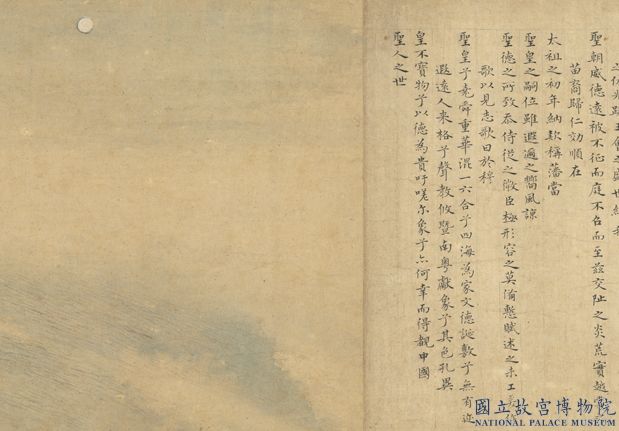 聖朝威德遠被不征而庭不召而至茲交阯之炎荒實越裳
苗裔歸仁効順在
太祖之初年納欵稱藩當
聖皇之嗣位雖遐邇之嚮風諒
聖德之所致忝侍從之散臣極形容之莫備慙賦述之未工
歌以見志歌曰於穆
聖皇兮堯舜重華混一六合兮四海為家文德誕敷兮無有迩
遐遠人来格兮聲教攸暨南粤獻象兮其色孔異
皇不寶物兮以德為貴吁嗟尔象兮亦何幸而得覩中國
聖人之世
國立故宮博物院
NATIONAL PALACE MUSEUM